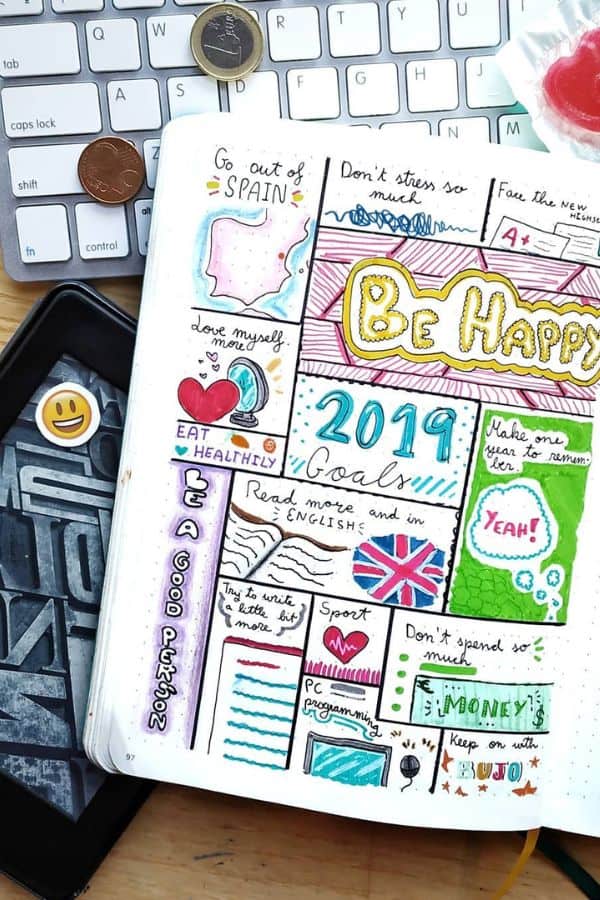 tab
Q
W
R
T
Y
U
I
caps lock
A
S
D
F
G
H
J
shift
Z
M
fn
control
alt
1
EURO
Go out of
SPAIN
Don't stress so
much
Face the NEW
A+
BE HAPPY
Love myself
more
EAT
HEALTHILY
2019
Goals
Make one
year to remem-
ber.
YEAH!
BE A GOOD PERSON
Read more and in
ENGLISH
Try to write
a little bit
more
Sport
Don't spend so
much
MONEY
$
PC
programming
Keep on with
BUJO
97